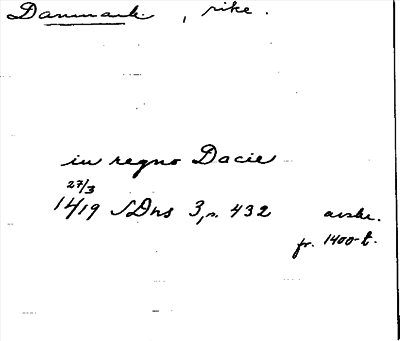 Danmark, rike.
in regno Dacie
27/3
1419 SDns 3, s. 432 avskr.
fr. 1400-t.